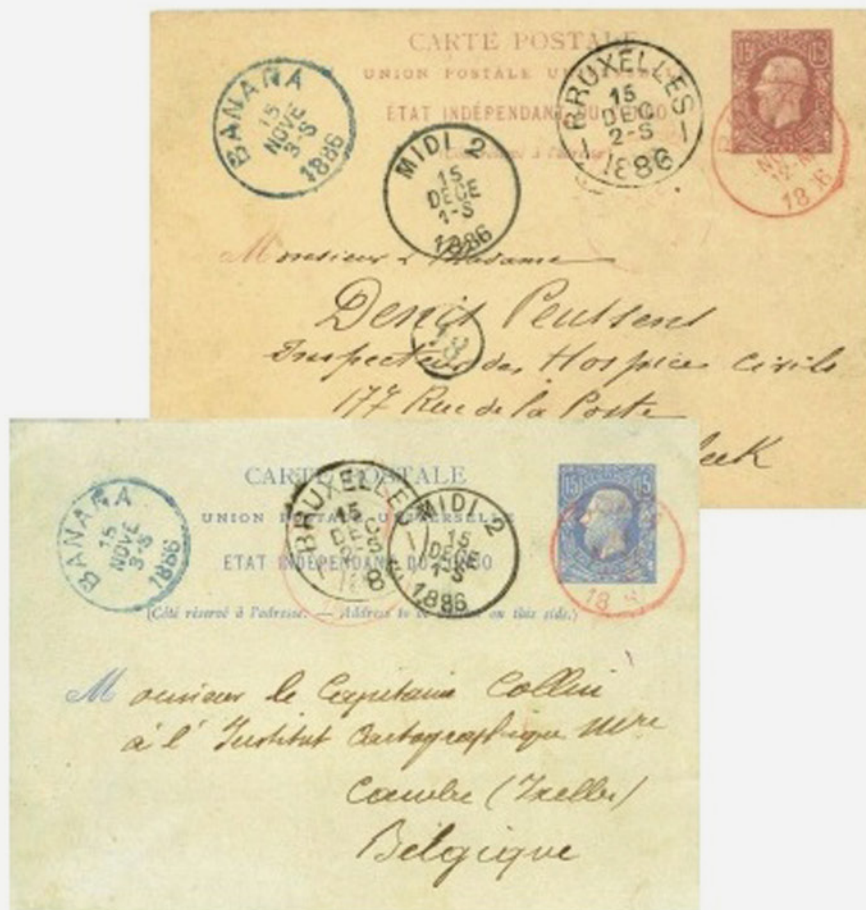 CARTE POSTALE
UNION POSTALE
ETAT INDÉPENDANT DU CONGO
15 15
BANANA
15
NOVE
3-S
1886
MIDI 2
15
DECE
1-S
1886
BRUXELLES
15
DEC
2-S
1886
18
Monsieur & Madame
Denis
Inspecteur des Hospices Civils
177 Rue de la Poste
CARTE POSTALE
UNION POSTALE UNIVERSELLE
ETAT INDÉPENDANT DU CONGO
(Côté réservé à l'adresse. — Address to be on this side.)
15 15
BANANA
15
NOVE
3-S
1886
BRUXELLES
15
MIDI 2
15
DECE
1-S
1886
Monsieur le Capitaine Collin
à l'Institut Cartographique Mre
(Ixelles)
Belgique